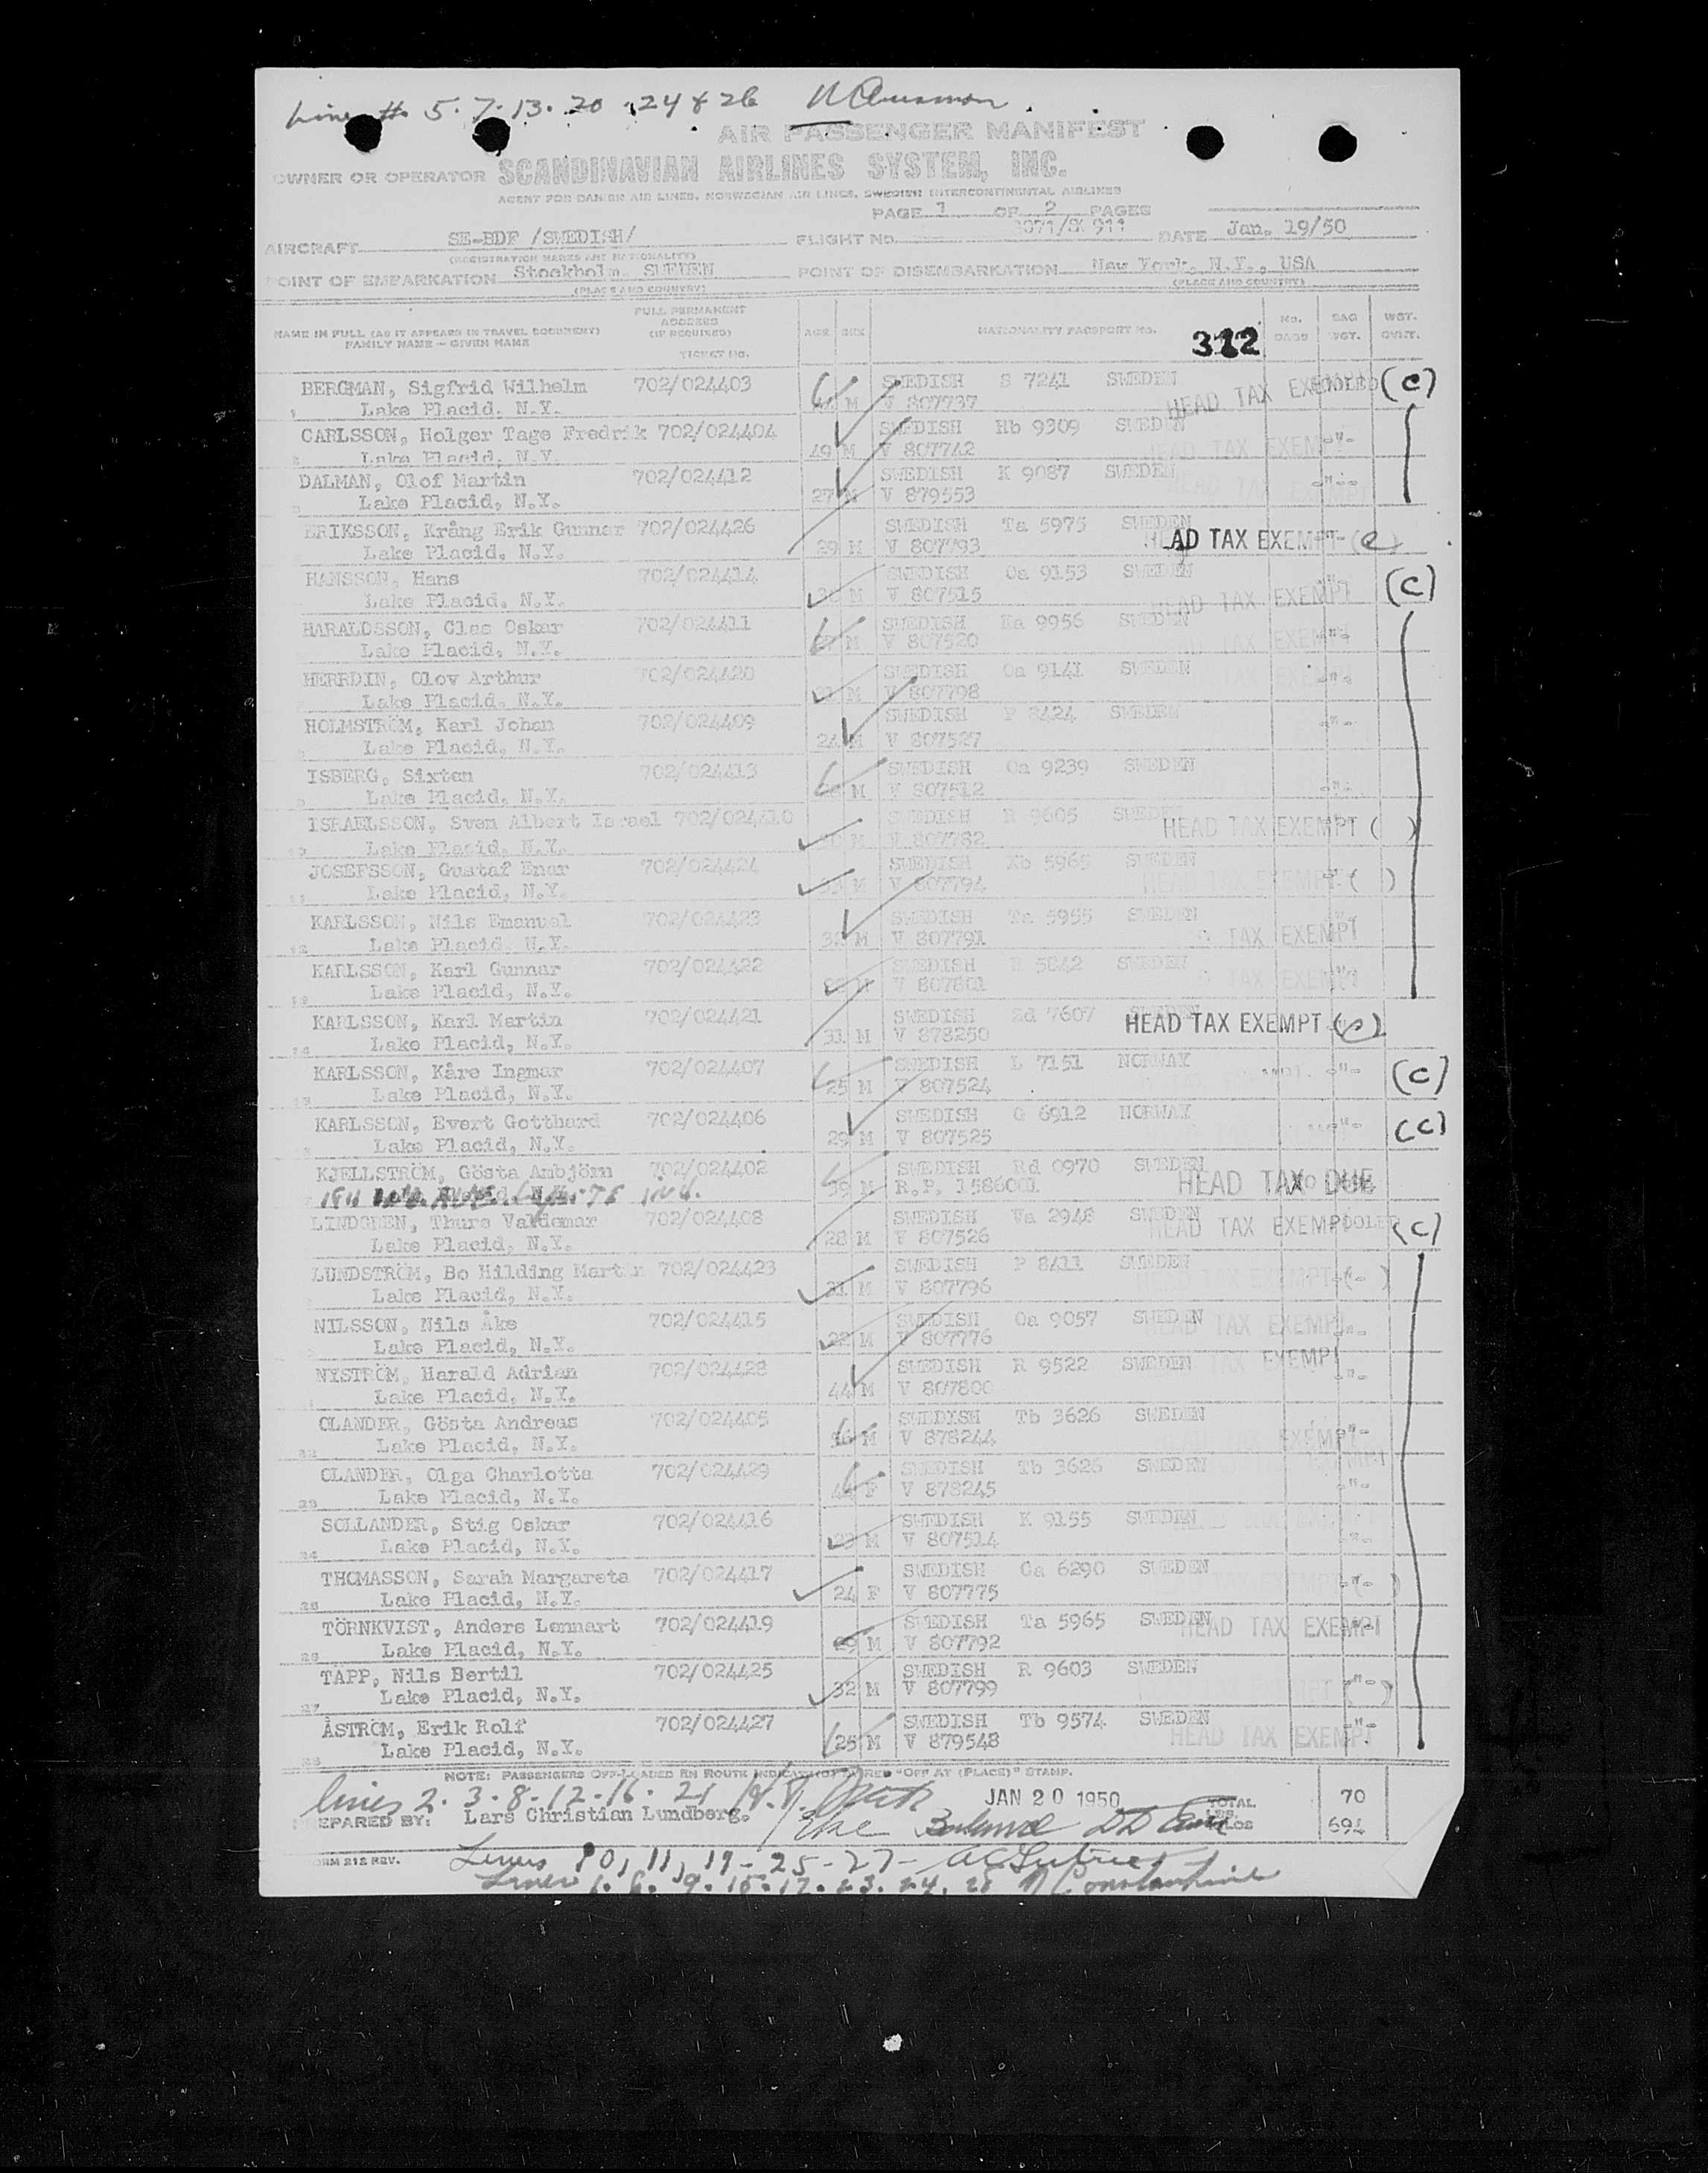 Line #. 5. 7. 13. 20. 24 & 26
AIR PASSENGER MANIFEST
OWNER OR OPERATOR SCANDINAVIAN AIRLINES SYSTEM, INC.
AGENT FOR DANISH AIR LINES, NORWEGIAN AIR LINES, SWEDISH INTERCONTINENTAL AIRLINES
PAGE 1 OF 2 PAGES
AIRCRAFT SE-BDF /SWEDISH/ FLIGHT NO. DATE Jan. 19/50
(REGISTRATION MARKS AND NATIONALITY)
POINT OF EMBARKATION Stockholm, SWEDEN POINT OF DISEMBARKATION New York, N.Y., USA
(PLACE AND COUNTRY) (PLACE AND COUNTRY)
NAME IN FULL (AS IT APPEARS IN TRAVEL DOCUMENT) FAMILY NAME - GIVEN NAME FULL PERMANENT ADDRESS (IF REQUIRED) TICKET NO. AGE SEX NATIONALITY PASSPORT NO. 312 No. BAGS BAG WGT. WGT. OVWT.
BERGMAN, Sigfrid Wilhelm 702/024403 SWEDISH S 7241 SWEDEN POOLED (C)
1 Lake Placid, N.Y. M V 807737 HEAD TAX EXEMPT
CARLSSON, Holger Tage Fredrik 702/024404 SWEDISH Hb 9309 SWEDEN -"-
2 Lake Placid, N.Y. 49 M V 807742 HEAD TAX EXEMPT
DALMAN, Olof Martin 702/024412 SWEDISH K 9087 SWEDEN -"-
3 Lake Placid, N.Y. 27 M V 879553 HEAD TAX EXEMPT
ERIKSSON, Krång Erik Gunnar 702/024426 SWEDISH Ta 5975 SWEDEN
Lake Placid, N.Y. 29 M V 807793 HEAD TAX EXEMPT -"- (C)
HANSSON, Hans 702/024414 SWEDISH Oa 9153 SWEDEN -"- (C)
Lake Placid, N.Y. M V 807515 HEAD TAX EXEMPT
HARALDSSON, Clas Oskar 702/024411 SWEDISH Ea 9956 SWEDEN -"-
Lake Placid, N.Y. 27 M V 807520 HEAD TAX EXEMPT
HERRDIN, Olov Arthur 702/024420 SWEDISH Oa 9141 SWEDEN
7 Lake Placid, N.Y. 21 M V 807798 TAX EXEMPT -"-
HOLMSTRÖM, Karl Johan 702/024409 SWEDISH P 8424 SWEDEN -"-
Lake Placid, N.Y. 24 M V 807527
ISBERG, Sixten 702/024413 SWEDISH Oa 9239 SWEDEN
9 Lake Placid, N.Y. M V 807512 -"-
ISRAELSSON, Sven Albert Israel 702/024410 SWEDISH R 9605 SWEDEN
10 Lake Placid, N.Y. M V 807782 HEAD TAX EXEMPT ( )
JOSEFSSON, Gustaf Enar 702/024424 SWEDISH Xb 5965 SWEDEN
11 Lake Placid, N.Y. 33 M V 807794 HEAD TAX EXEMPT -"- ( )
KARLSSON, Nils Emanuel 702/024423 SWEDISH Ta 5955 SWEDEN -"-
12 Lake Placid, N.Y. 32 M V 807791 TAX EXEMPT
KARLSSON, Karl Gunnar 702/024422 SWEDISH R 5842 SWEDEN -"-
13 Lake Placid, N.Y. M V 807801 TAX EXEMPT
KARLSSON, Karl Martin 702/024421 SWEDISH Zd 7607 SWEDEN
14 Lake Placid, N.Y. 31 M V 878250 HEAD TAX EXEMPT (C)
KARLSSON, Kåre Ingmar 702/024407 SWEDISH L 7151 NORWAY -"- (C)
15 Lake Placid, N.Y. 25 M V 807524
KARLSSON, Evert Gotthard 702/024406 SWEDISH G 6912 NORWAY -"- (C)
Lake Placid, N.Y. 29 M V 807525
KJELLSTRÖM, Gösta Ambjörn 702/024402 SWEDISH Rd 0970 SWEDEN
36 M R.P. 1586001 HEAD TAX DUE
LINDGREN, Thure Valdemar 702/024408 SWEDISH Va 2948 SWEDEN POOLED (C)
Lake Placid, N.Y. 28 M V 807526 HEAD TAX EXEMPT
LUNDSTRÖM, Bo Hilding Martin 702/024423 SWEDISH P 8411 SWEDEN
Lake Placid, N.Y. 31 M V 807796 TAX EXEMPT (-"-)
NILSSON, Nils Åke 702/024415 SWEDISH Oa 9057 SWEDEN
Lake Placid, N.Y. 22 M V 807776 HEAD TAX EXEMPT -"-
NYSTRÖM, Harald Adrian 702/024428 SWEDISH R 9522 SWEDEN TAX EXEMPT
Lake Placid, N.Y. 44 M V 807800 -"-
OLANDER, Gösta Andreas 702/024405 SWEDISH Tb 3626 SWEDEN
22 Lake Placid, N.Y. 56 M V 878244 EXEMPT -"-
OLANDER, Olga Charlotta 702/024429 SWEDISH Tb 3626 SWEDEN
23 Lake Placid, N.Y. 44 F V 878245 -"-
SOLLANDER, Stig Oskar 702/024416 SWEDISH K 9155 SWEDEN
24 Lake Placid, N.Y. 23 M V 807514 -"-
THOMASSON, Sarah Margareta 702/024417 SWEDISH Ca 6290 SWEDEN
25 Lake Placid, N.Y. 24 F V 807775 -"- )
TÖRNKVIST, Anders Lennart 702/024419 SWEDISH Ta 5965 SWEDEN HEAD TAX EXEMPT
26 Lake Placid, N.Y. 29 M V 807792 -"-
TÄPP, Nils Bertil 702/024425 SWEDISH R 9603 SWEDEN
27 Lake Placid, N.Y. 32 M V 807799 (-"-)
ÅSTRÖM, Erik Rolf 702/024427 SWEDISH Tb 9574 SWEDEN -"-
28 Lake Placid, N.Y. 25 M V 879548 HEAD TAX EXEMPT
NOTE: PASSENGERS OFF-LOADED EN ROUTE INDICATED "OFF AT (PLACE)" STAMP.
lines 2. 3. 8. 12. 16. 21 JAN 20 1950 TOTAL LBS. 70
PREPARED BY: Lars Christian Lundberg. KILOS 694
FORM 212 REV. Lines 10, 11, 19 - 25 - 27 -
Lines 1. 6. 9. 15. 17. 23. 24. 28 Constantine